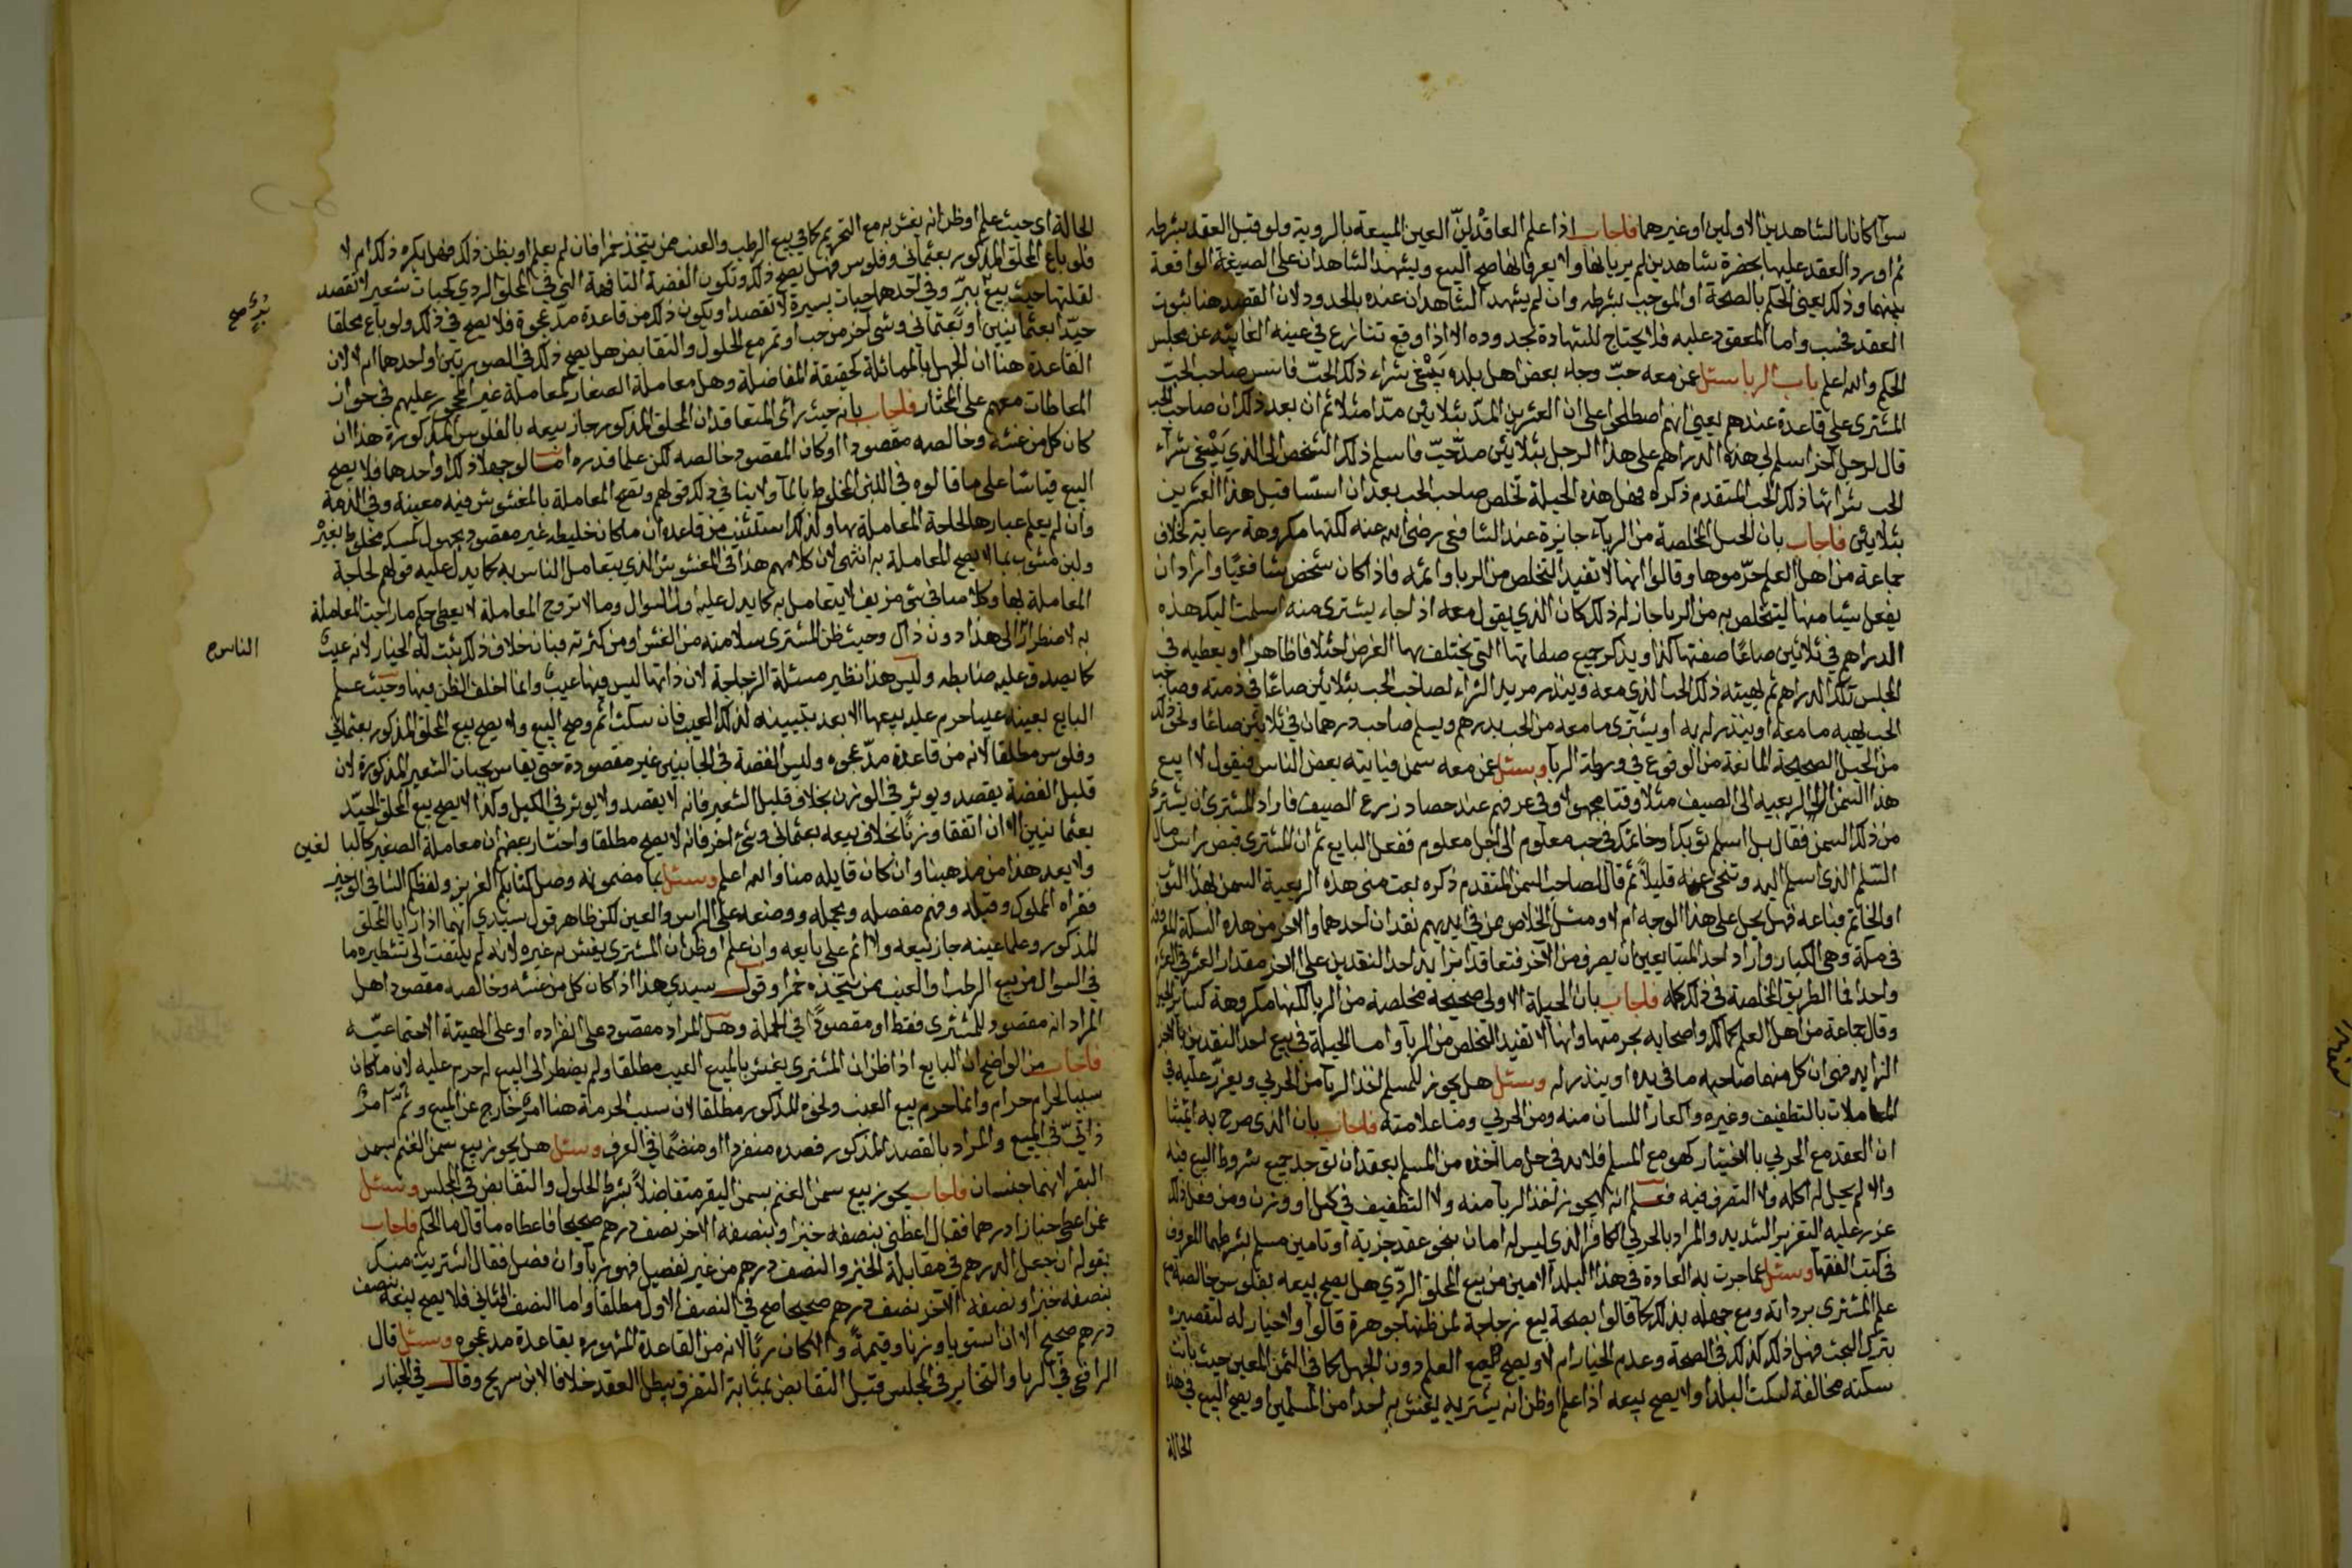 سوآ كانا بالشاهدين الاولين او غيرهما فاجاب اذا علم العاقدين العين المبيعة بالروية ولو قبل العقد بشرطه
ثم اورد العقد عليها بحضرة شاهدين لم يريانها ولا يعرفانها صح البيع ويشهد الشاهدان على الصيغة الواقعة
بينهما وذلك يعني الحكم بالصحة او الموجب بشرطه وان لم يشهد الشاهدان عنده بالحدود لان القصد هنا ثبوت
العقد فحسب واما المعقود عليه فلا يحتاج للشهادة بحدوده الا اذا وقع تنازع في عينه الغايبة عن مجلس
الحكم والله اعلم باب الربا سئل عمن معه حبّ وجاء بعض اهل بلده يبتغي شراء ذلك الحبّ صاحب الحبّ
المشتري على قاعدة عندهم يعني انهم اصطلحوا على ان العشرين المدّ بثلاثين مدّا مثلا ثم ان بعد ذلك ان صاحب الحب
قال لرجل آخر اسلم لي هذه الدراهم على هذا الرجل بثلاثين مدّ حبّ فاسلم ذلك الشخص الى الذي يبتغي شرآء
الحب ذلك الحب المتقدم ذكره فهل هذه الحيلة تخلص صاحب الحب بعد ان قبل هذا العشرين
بثلاثين فاجاب بان الحيل المخلصة من الرباء جايزة عند الشافعي رضي الله عنه لكنها مكروهة رعاية لخلاف
جماعة من اهل العلم حرّموها وقالوا انها لا تفيد التخلص من الربا واثمه فاذا كان شخص شافعيًا واراد ان
يفعل شيئا منها ليتخلص به من الربا جاز له ذلك كان الذي يقول معه اذا جاء يشتري منه اسلمت اليك هذه
الدراهم في ثلاثين صاعًا صفتها كذا ويذكر جميع صفاتها التي يختلف بها الغرض اختلافا ظاهرا او يعطيه في
المجلس تلك الدراهم ثم يهبه ذلك الحب الذي معه وينذر مريد الشراء لصاحب الحب بثلاثين صاعًا في ذمته وصاحب
الحب يهبه ما معه او ينذر له به او يشتري ما معه من الحب بدرهم ويسلم صاحب درهمان في ثلاثين صاعًا ونحو ذلك
من الحيل الصحيحة المانعة من الوقوع في ورطة الربا وسئل عمن معه سمن فياتيه بعض الناس فيقول لا ابيع
هذا السمن الى الصيف مثلا وقتا مجهولا وفي عرفهم عند حصاد زرع الصيف فاراد المشتري ان يشتري
من ذلك السمن فقال بل اسلم ثوبك او خاتمك في حب معلوم الى اجل معلوم ففعل البايع ثم ان المشتري قبض راس مال
السّلم الذي اسلم اليه وتنحى عنه قليلاً ثم قال لصاحب السمن المتقدم ذكره بعت مني هذه الربعية السمن بهذا الثوب
او الخاتم فباعه فهل يحل على هذا الوجه ام لا ومثل الخلاص من في ايديهم نقدان احدهما والآخر من هذه السكة المعروفة
في مكة وهي الكبار واراد احد المتبايعين ان يصرف من الآخر فتعاقدا تزايد احد النقدين على الآخر مقدار العشر
واحدا فما الطريق المخلصة في ذلك كله فاجاب بان الحيلة الاولى صحيحة مخلصة من الربا لكنها مكروهة كساير الحيل
وقال جماعة من اهل العلم كمالك واصحابه بحرمتها وانها لا تفيد التخلص من الربآ واما الحيلة في بيع احد النقدين بالآخر
الزايد فهي ان كل منهما صاحبه ما في يده او ينذر له وسئل هل يجوز للمسلم اخذ الربآ من الحربي ويعزّر عليه في
المعاملات بالتطفيف وغيره والعار اللسان منه ومن الحربي وما علامته فاجاب بان الذي صرح به ائمتنا
ان العقد مع الحربي بالاختيار كهو مع المسلم فلا بد في حل ما اخذه من المسلم بعقد ان توجد جميع شروط البيع فيه
والا لم يحل له اكله ولا التصرف فيه فعلم انه لا يجوز اخذ الربآ منه ولا التطفيف في كيل او وزن ومن فعل ذلك
عزر عليه التعزير الشديد والمراد بالحربي الكافر الذي ليس له امان بنحو عقد جزية او تامين مسلم بشرطهما المعروف
في كتب الفقها وسئل عما جرت به العادة في هذا البلد الامين من بيع المحلق الرديّ هل يصح بيعه بفلوس خالصة مع
علم المشتري برداته ومع جهله بذلك كما قالوا بصحة بيع زجاجة لمن ظنها جوهرة قالوا ولا خيار له لتقصيره
بترك البحث فهل ذلك كذلك في الصحة وعدم الخيار ام لا ويصح مع العلم دون الجهل كما في الثمن المعين حيث بانت
سكته مخالفة لسكة البلد او لا يصح بيعه اذا علم او ظن انه يشتريه يغش به احدا من المسلمين او يصح البيع في هذه
الحالة
الحالة اي حيث علم او ظن انه يغش به مع التحريم كما في بيع الرطب والعنب ممن يتخذ خمرا فان لم يعلم او يظن ذلك فهل يكره ذلك ام لا
فلو باع المحلق المذكور بعثماني وفلوس فهل يصح ذلك وتكون الفضة التافهة التي في المحلق الردي كحبات شعير لا تقصد
لقلتها حيث بيع ببرّ وفي احدهما حبات يسيرة لا تقصد او يكون ذلك من قاعدة مدّ عجوة فلا يصح في ذلك ولو باع محلقا
جيّدا بعثمانيين او بعثماني وشي آخر من حب او تمر مع الحلول والتقابض هل يصح ذلك في الصورتين او احدهما ام لا لان
القاعدة هنا ان الجهل بالمماثلة كحقيقة المفاضلة وهل معاملة الصغار كمعاملة غير المحجور عليهم في جواز
المعاطات معهم على المختار فاجاب بانه حيث رأى المتعاقدان المحلق المذكور جاز بيعه بالفلوس المذكورة هذا ان
كان كل من غشه وخالصه مقصودا او كان المقصود خالصه لكن علما قدره اما لو جهلا ذلك او احدهما فلا يصح
البيع قياسًا على ما قالوه في اللبن المخلوط بالمآ ولا ينافي ذلك قولهم وتصح المعاملة بالمغشوش فيه معينة وفي الذمة
وان لم يعلم عيارها لحاجة المعاملة بها ولذلك استثنيت من قاعدة ان ما كان خليطه غير مقصود مجهول كمسك مخلوط بغيره
ولبن مشوب بمآ لا يصح المعاملة به انتهى لان كلامهم هذا في المغشوش الذي يتعامل الناس به كما يدل عليه قولهم لحاجة
المعاملة بها وكلامنا في شي مزيف لا يتعامل به كما يدل عليه السوال وما لا تروج المعاملة لا يعطى حكم ما راجت المعاملة
به لاضطرار الى هذا دون ذاك وحيث ظن المشتري سلامته من الغش او من كثرته فبان خلاف ذلك ثبت له الخيار لانه عيب
كما يصدق عليه ضابطه وليس هذا نظير مسئلة الزجاجة لان ذاتها ليس فيها عيب وانما اخلف الظن فيها وحيث علم
البايع بعينه عيبا حرم عليه بيعها الا بعد تبيينه لذلك العيب فان سكت اثم وصح البيع ولا يصح بيع المحلق المذكور بعثماني
وفلوس مطلقا لانه من قاعدة مدّ عجوه وليس الفضة في الجانبين غير مقصودة حتى يقاس بحبات الشعير المذكورة لان
قليل الفضة يقصد ويوثر في الوزن بخلاف قليل الشعير فانه لا يقصد ولا يوثر في الكيل وكذا لا يصح بيع المحلق الجيّد
بعثمانيين الا ان اتفقا وزنًا بخلاف بيعه بعثماني وشئ آخر فانه لا يصح مطلقا واختار بعضهم ان معاملة الصغير كالبالغين
ولا يعد هذا من مذهبنا وان كان قايله منا والله اعلم وسئل بما مضمونه وصل كتابكم العزيز ولفظكم الشافي الوجيز
فقراه المملوك وقبله وفهم مفصله ومجمله ووضعه على الراس والعين لكن ظاهر قول سيدي انهما اذا رايا المحلق
المذكور وعلما عينه جاز بيعه ولا اثم على بايعه وان علم او ظن ان المشتري يغش به غيره لانه لم يلتفت الى تشطيره ما
في السوال من بيع الرطب او العنب ممن يتخذه خمرا وقول سيدي هذا اذا كان كل من غشه وخالصه مقصود اهل
المراد انه مقصود للمشتري فقط او مقصودًا في الجملة وهل المراد مقصود على انفراده او على الهيئة الاجتماعيّة
فاجاب من الواضح ان البايع اذا ظن ان المشتري يغش بالمبيع المعيب مطلقا ولم يضطر الى البيع له حرم عليه لان ما كان
سببا لحرام حرام وانما حرم بيع العنب ونحوه المذكور مطلقا لان سبب الحرمة هنا امر خارج عن المبيع وثَمّ امرٌ
ذاتيّ في المبيع والمراد بالقصد المذكور قصده منفردا او منضمًا في العرف وسئل هل يجوز بيع سمن الغنم بسمن
البقر لانهما جنسان فاجاب يجوز بيع سمن الغنم بسمن البقر متفاضلاً بشرط الحلول والتقابض في المجلس وسئل
عمن اعطى خبازا درهما فقال اعطني بنصفه خبزا وبنصفه الآخر نصف درهم صحيحا فاعطاه ما قال ما الحكم فاجاب
بقوله ان جعل الدرهم في مقابلة الخبز والنصف درهم من غير تفصيل فهو ربآ وان فصل فقال اشتريت منك
بنصفه خبزا ونصفه الآخر نصف درهم صحيحا صح في النصف الاول مطلقا واما النصف الثاني فلا يصح بيعه بنصف
درهم صحيح الا ان استويا وزنا وقيمةً والا كان ربًا لانه من القاعدة المشهورة بقاعدة مد عجوه وسئل قال
الرافعي في الربا والتخاير في المجلس قبل التقابض بمثابة التفرق يبطل العقد خلافا لابن سريج وقال في الخيار
الناس صح